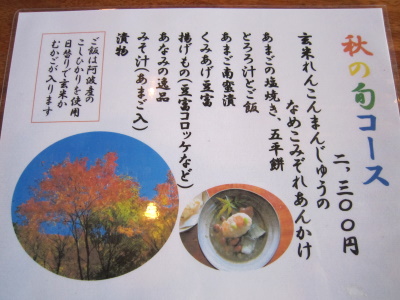 秋の旬コース
二、三〇〇円
玄米れんこんまんじゅうの
なめこみぞれあんかけ
あまごの塩焼き、五平餅
とろろ汁とご飯
あまご南蛮漬
くみあげ豆富
揚げもの(豆富コロッケなど)
あなみの逸品
みそ汁(あまご入)
漬物
ご飯は阿波産の
こしひかりを使用
日替りで玄米か
むかごが入ります